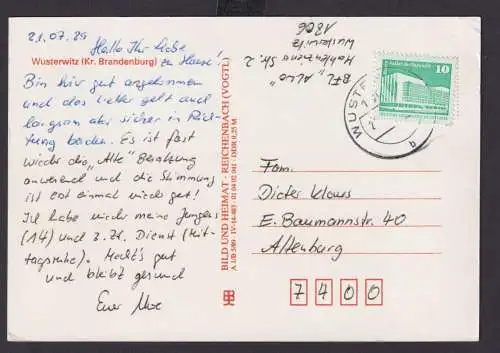 21.07.89
Hallo Ihr Lieben
Wusterwitz (Kr. Brandenburg) zu Hause!
Bin hier gut angekommen
und das Wetter geht auch
langsam aber sicher in Rich-
tung baden. Es ist fast
wieder die „Alte" Besatzung
anwesend und die Stimmung
ist erst einmal sehr gut!
Ich habe wieder meine Jungens
(14) und z. Zt. Dienst (Mit-
tagsruhe). Macht's gut
und bleibt gesund
Euer
BILD UND HEIMAT · REICHENBACH (VOGTL)
A 1/B 5/89 IV-14-483 01 04 02 041 DDR 0,25 M
BFL
Str. 2
Wusterwitz
1806
10
WUST
b
Fam.
Dieter Klaus
E.-Baumannstr. 40
Altenburg
7400